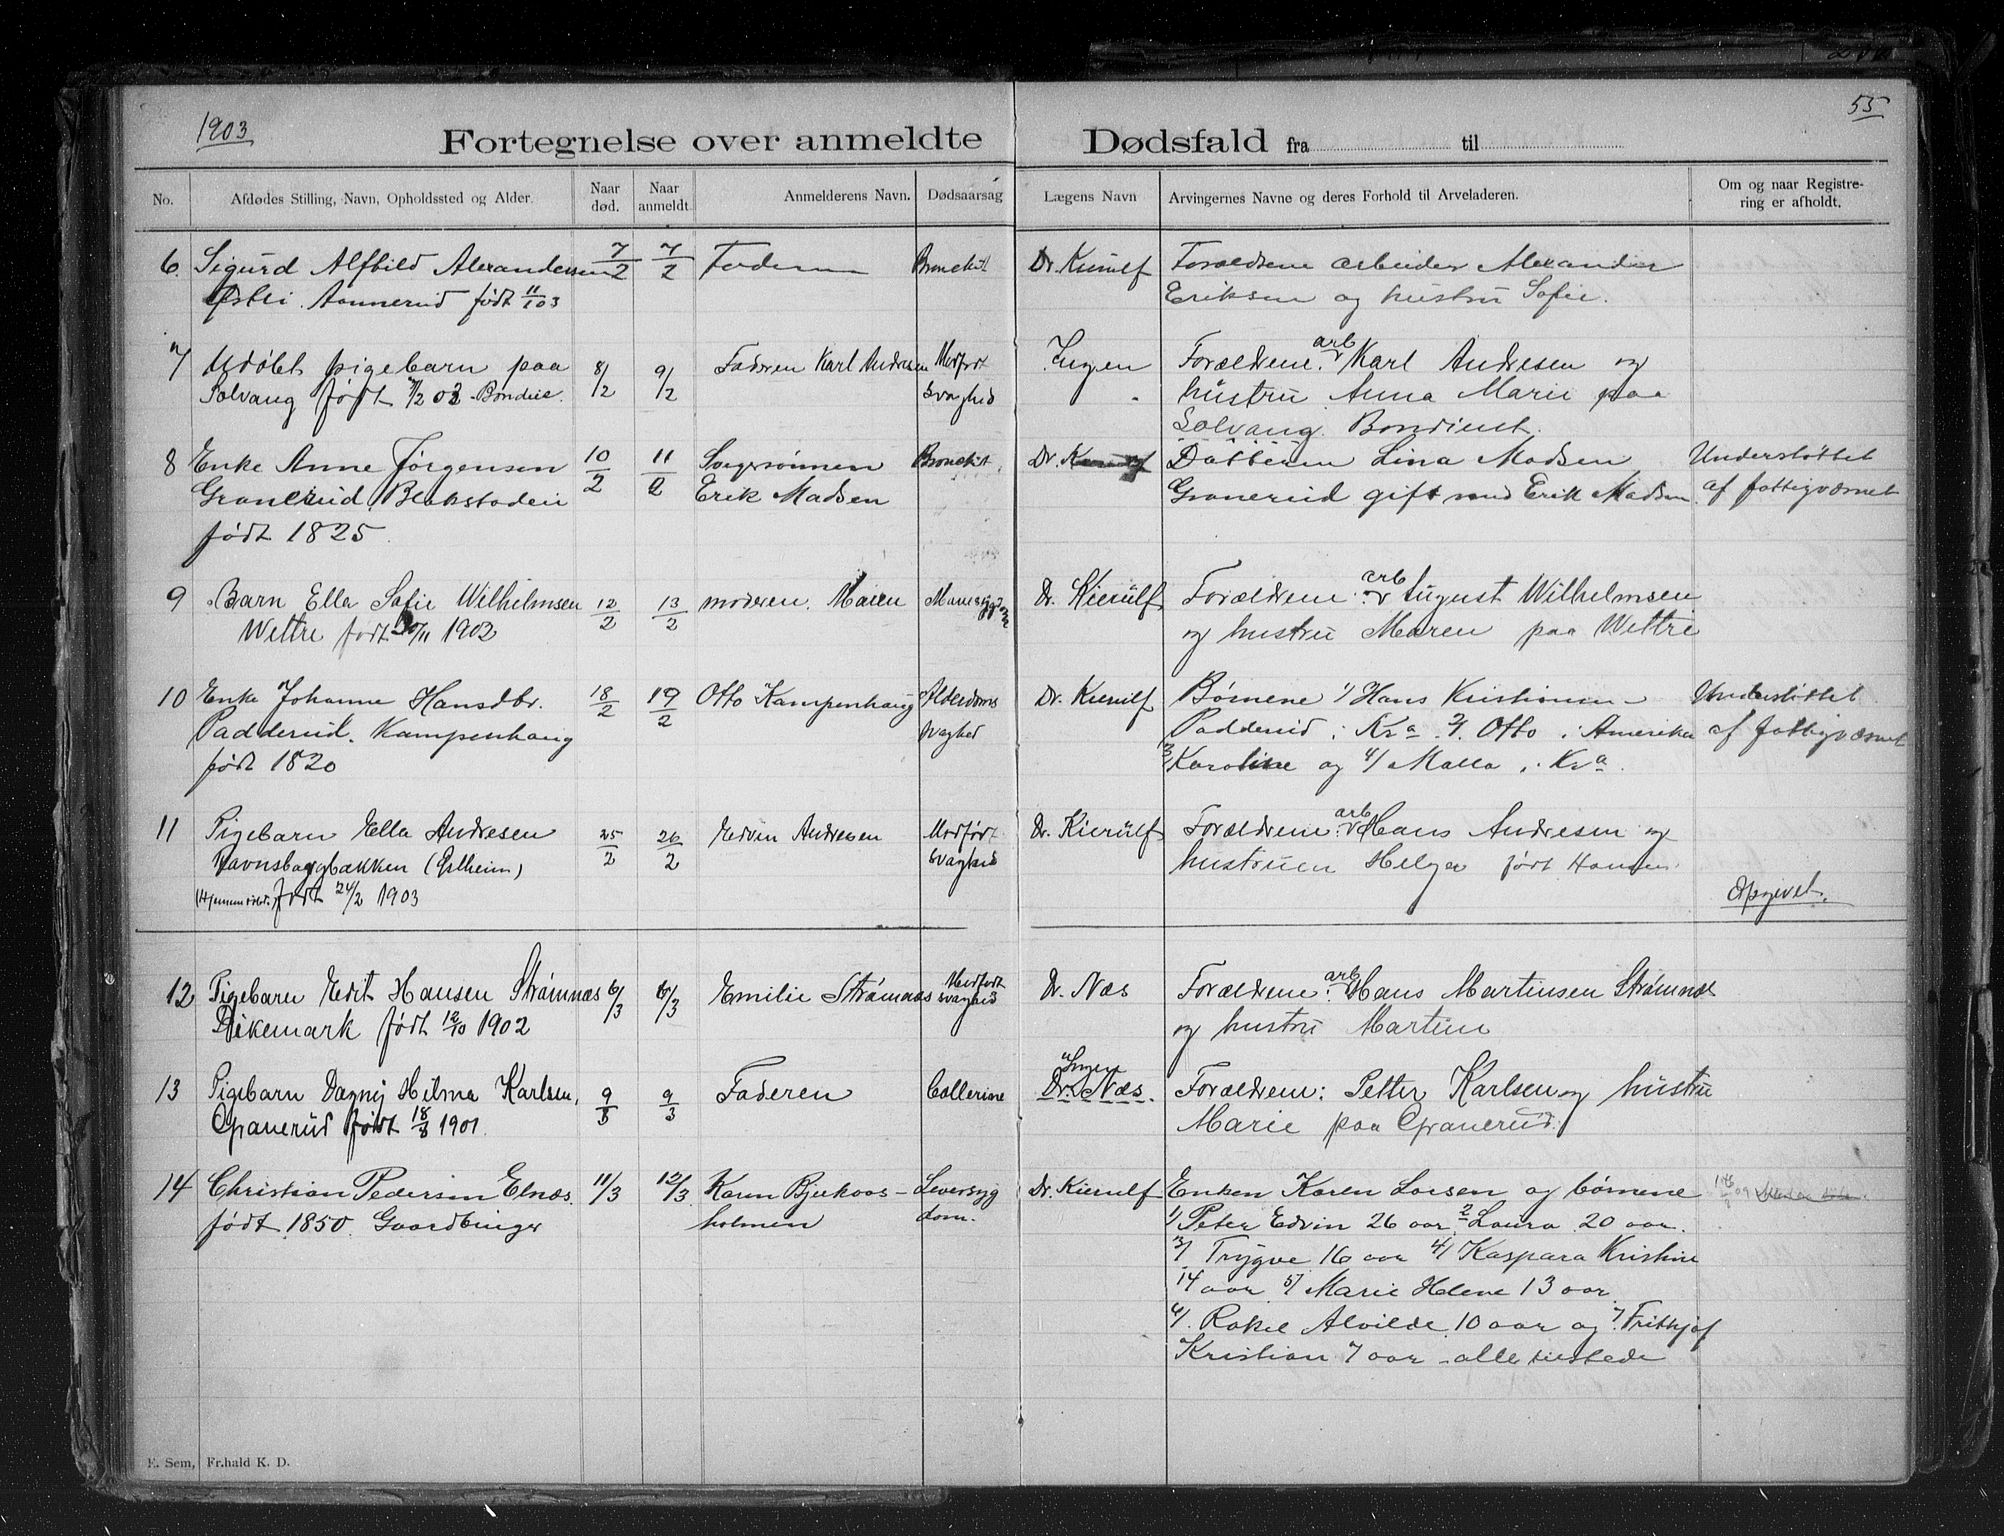 1903
55
Fortegnelse over anmeldte Dødsfald fra til
No.
Afdødes Stilling, Navn, Opholdssted og Alder.
Naar død.
Naar anmeldt.
Anmelderens Navn.
Dødsaarsag
Lægens Navn
Arvingernes Navne og deres Forhold til Arveladeren.
Om og naar Registre-
ring er afholdt.
6. Sigurd Alfhild Alexandersen 7/2 7/2 Faderen Bronchit Dr. Kierulf Forældrene arbeider Alexander
Østli. Aannerud født 11/1 03 Eriksen og hustru Sofie.
7 Udøbt pigebarn paa 8/2 9/2 Faderen Karl Andresen Medfødt Ingen Forældrene: arb Karl Andresen og
Solvang født 7/2 03 Bondiie. svaghed hustru Anna Marie paa
Solvang. Bondiest.
8 Enke Anne Jørgensen 10/2 11/2 Svigersønnen Bronchit. Dr. Datteren Lina Madsen Understøttet
Granerud, Blakstadeie Erik Madsen Granerud gift med Erik Madsen af fattigvæsnet
født 1825
9 Barn Ella Sofie Wilhelmsen 12/2 13/2 moderen Maren Dr. Kierulf Forældrene: arb August Wilhelmsen
Wettre født /11 1902 og hustru Maren paa Wettre
10 Enke Johanne Hansdtr. 18/2 19/2 Otto Kampenhaug Alderdoms Dr. Kierulf Børnene 1/ Hans Kristiansen Understøttet
Padderud. Kampenhaug svaghed Padderud i Kra 2/ Otto i Amerika af fattigvæsnet
født 1820 3/ Karoline og 4/ Malla i Kra.
11 Pigebarn Ella Andresen 25/2 26/2 Edvin Andresen Medfødt Dr. Kierulf Forældrene: arb Hans Andresen og
Ravnsborgbakken (Elheim) svaghed hustruen Helga født Hansen
(Hjemmedøbt) født 24/2 1903 Opgivet.
12 Pigebarn Edit Hansen Strømnæs 6/3 6/3 Emilie Strømnæs Medfødt svaghed Dr. Næs Forældrene: arb Hans Martinsen Strømnæs
Dikemark født 12/10 1902 og hustru Martine
13 Pigebarn Dagny Hilma Karlsen, 9/3 9/3 Faderen Collerine Ingen Dr. Næs. Forældrene: Petter Karlsen og hustru
Granerud født 18/8 1901. Marie paa Granerud.
14 Christian Pedersen Elnæs. 11/3 12/3 Karen Bjerkaas- Leversyg Dr. Kierulf Enken Karen Larsen og børnene
født 1850. Gaardbruger holmen dom. 1/ Peter Edvin 26 aar 2/ Laura 20 aar.
3/ Trygve 16 aar 4/ Kaspara Kristine
14 aar 5/ Marie Helene 13 aar
6/ Rakel Alvilde 10 aar og 7/ Frithjof
Kristian 7 aar - alle tilstede
E. Sem, Fr.hald K. D.